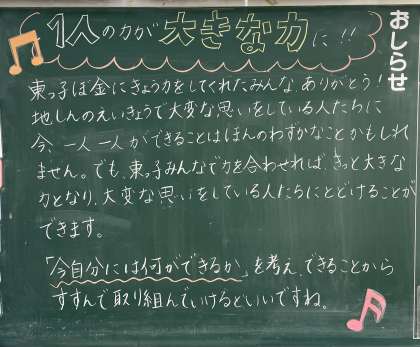 おしらせ
1人の力が大きな力に!!
東っ子ぼ金にきょう力をしてくれたみんな、ありがとう!
地しんのえいきょうで大変な思いをしている人たちに
今、一人一人ができることはほんのわずかなことかもしれ
ません。でも、東っ子みんなで力を合わせれば、きっと大きな
力となり、大変な思いをしている人たちにとどけることが
できます。
「今自分には何ができるか」を考え、できることから
すすんで取り組んでいけるといいですね。